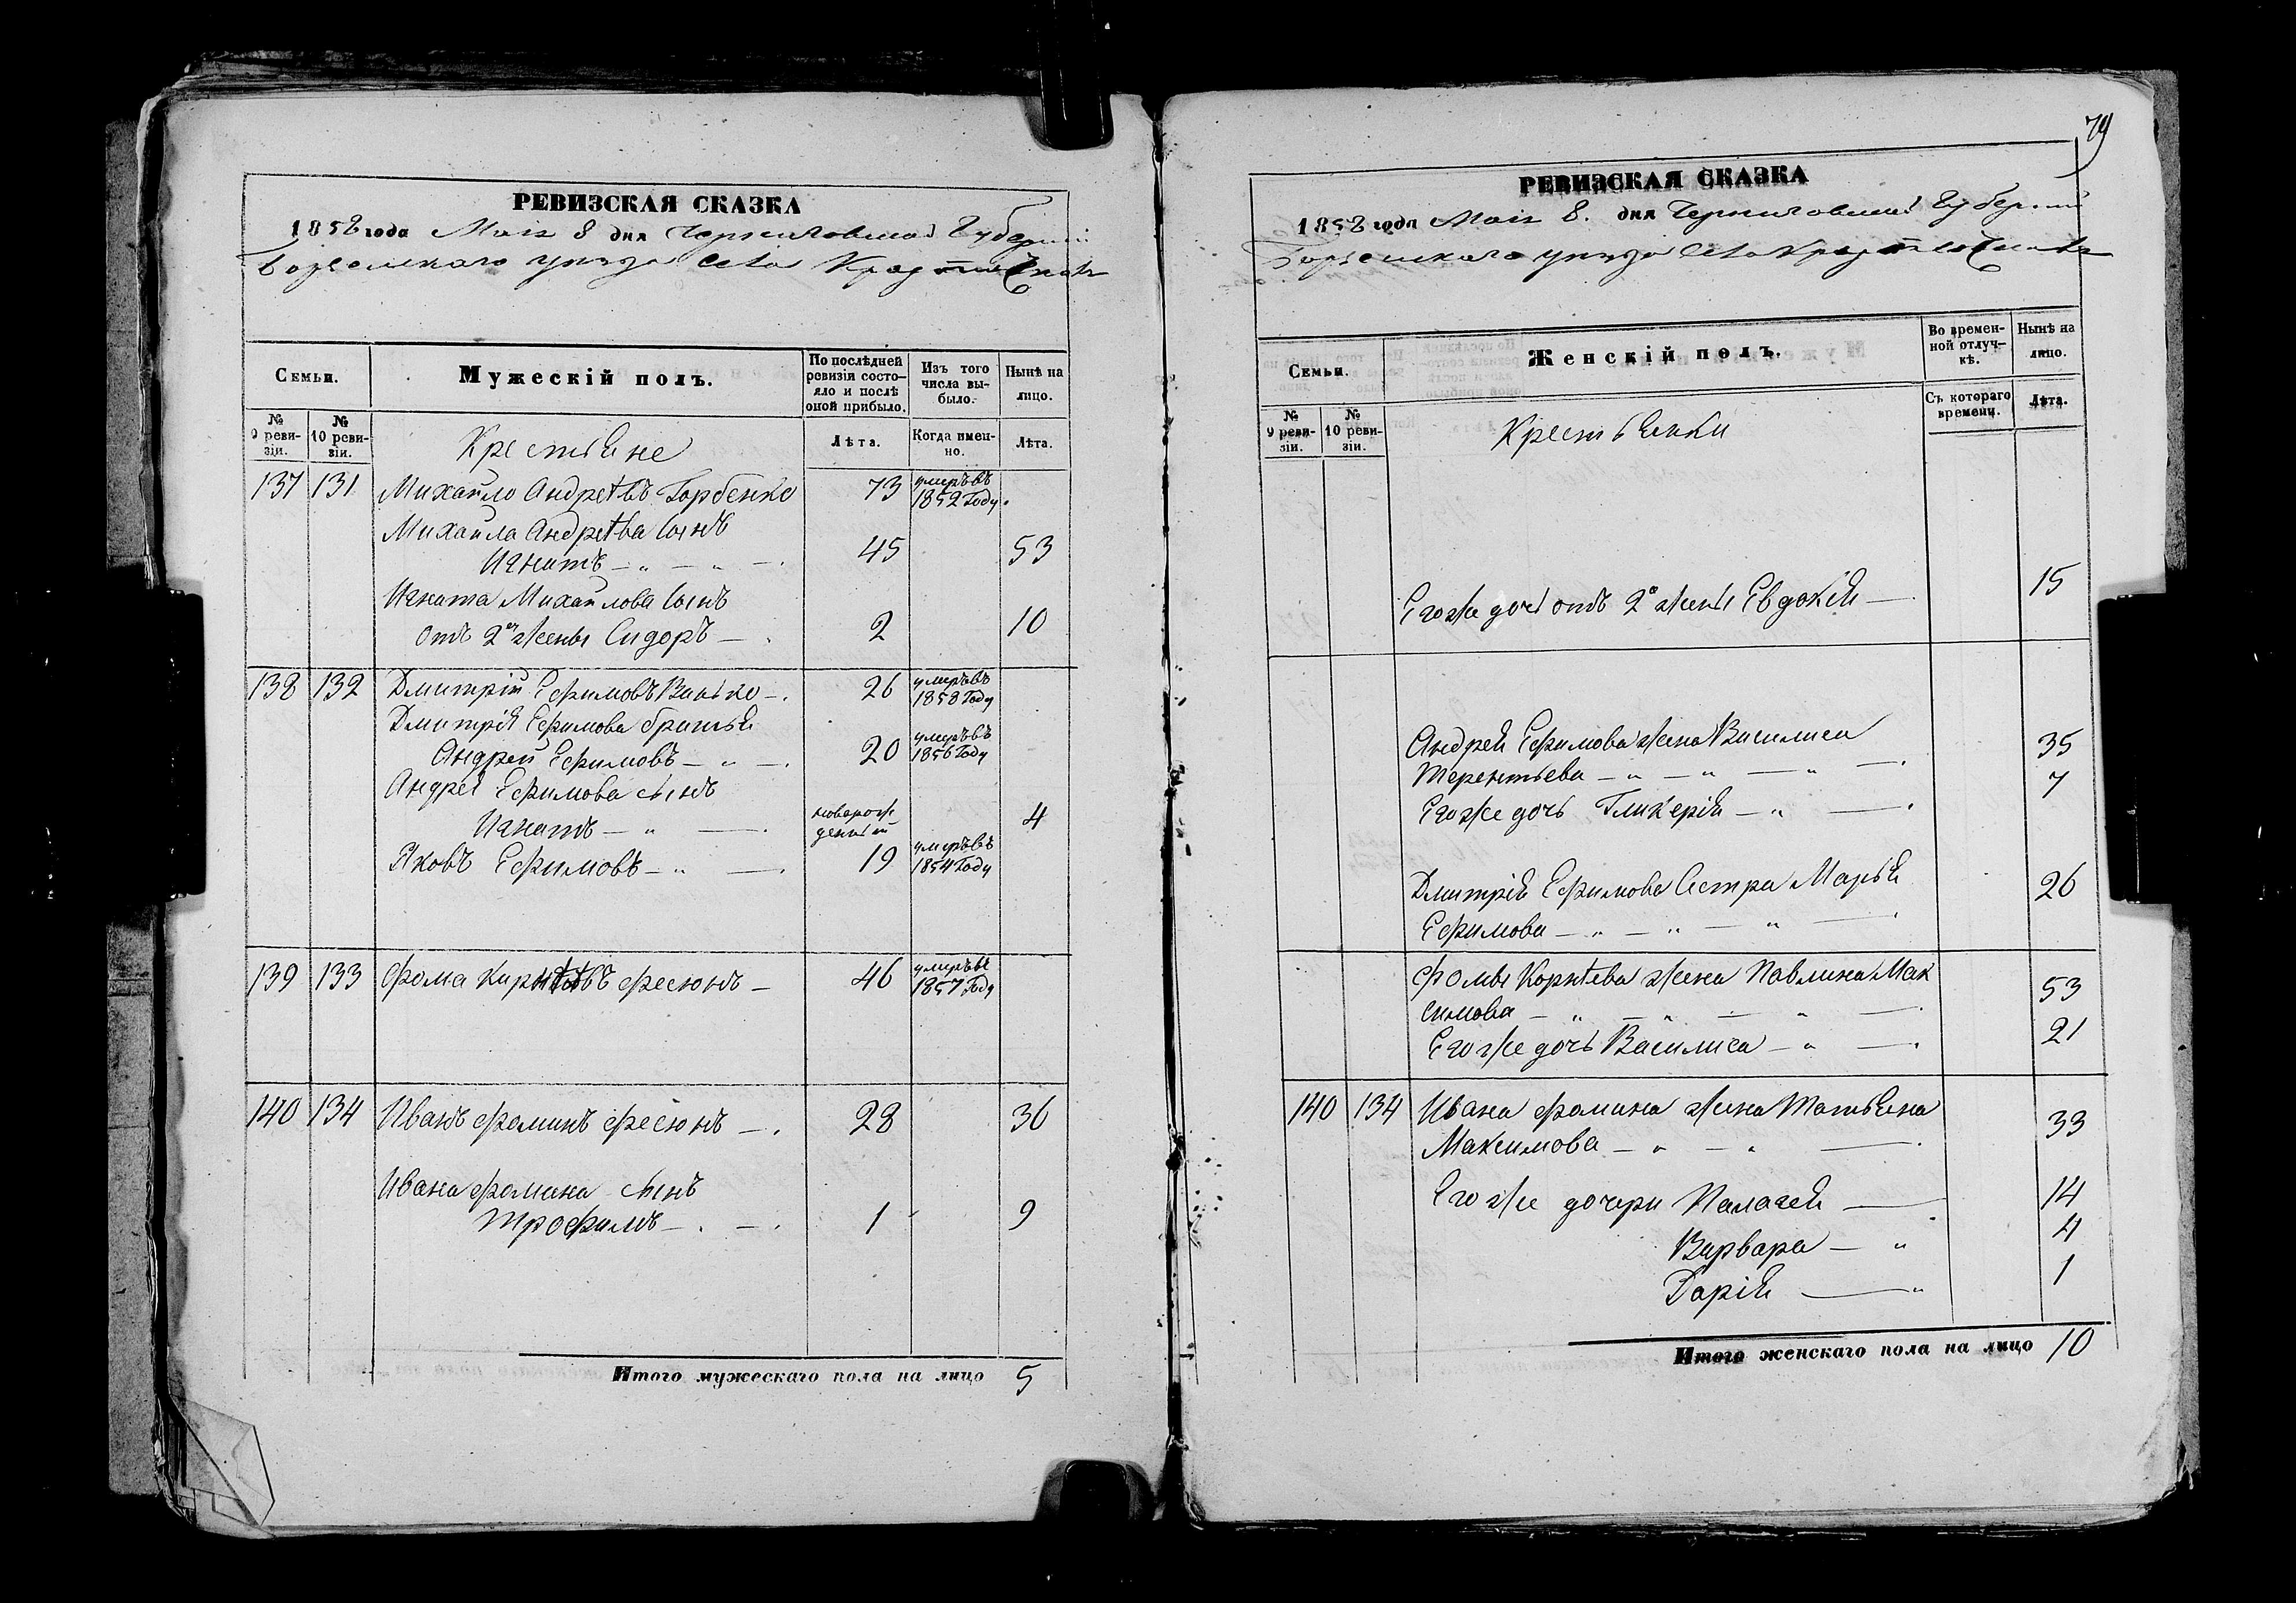 РЕВИЗСКАЯ СКАЗКА
1858 года Мая 8 дня Черниговской Губерніи
Борзенскаго уѣзда Села
Семьи.
Мужескій полъ.
По послѣдней ревизіи состояло и послѣ оной прибыло.
Изъ того числа выбыло.
Нынѣ на лицо.
№ 9 ревизіи.
№ 10 ревизіи.
Лѣта.
Когда именно.
Лѣта.
Крестьяне
137 131 Михайло Андреѣвъ Горбенко 73 умеръ въ 1852 Году.
Михайла Андреѣва Сынъ
Игнатъ 45 53
Игната Михайлова Сынъ
отъ 2й жены Сидоръ 2 10
138 132 Дмитрій Ефимовъ 26 умеръ въ 1858 Году
Дмитрія Ефимова братья
Андрей Ефимовъ 20 умеръ въ 1856 Году
Андрея Ефимова сынъ
Игнатъ новорожденный 4
Яковъ Ефимовъ 19 умеръ въ 1854 Году
139 133 Фома Фесюнъ 46 умеръ въ 1857 Году
140 134 Иванъ Фоминъ Фесюнъ 28 36
Ивана Фомина сынъ
Трофимъ 1 9
Итого мужескаго пола на лицо 5
79
РЕВИЗСКАЯ СКАЗКА
1858 года Мая 8. дня Черниговской Губерніи
Борзенскаго уѣзда Села
Семьи.
Женскій полъ.
Во временной отлучкѣ.
Нынѣ на лицо.
№ 9 ревизіи.
№ 10 ревизіи.
Съ котораго времени.
Лѣта.
Крестьянки
Егоже дочь отъ 2й жены Евдокія 15
Андрея Ефимова жена Василиса
Терентьева 35
Егоже дочь Гликерія 7
Дмитрія Ефимова Сестра Марья
Ефимова 26
Фомы Корнѣева жена Павлина Мак
симова 53
Егоже дочь Василиса 21
140 134 Ивана Фомина жена Татьяна
Максимова 33
Егоже дочери Палагея 14
Варвара 4
Дарія 1
Итого женскаго пола на лицо 10